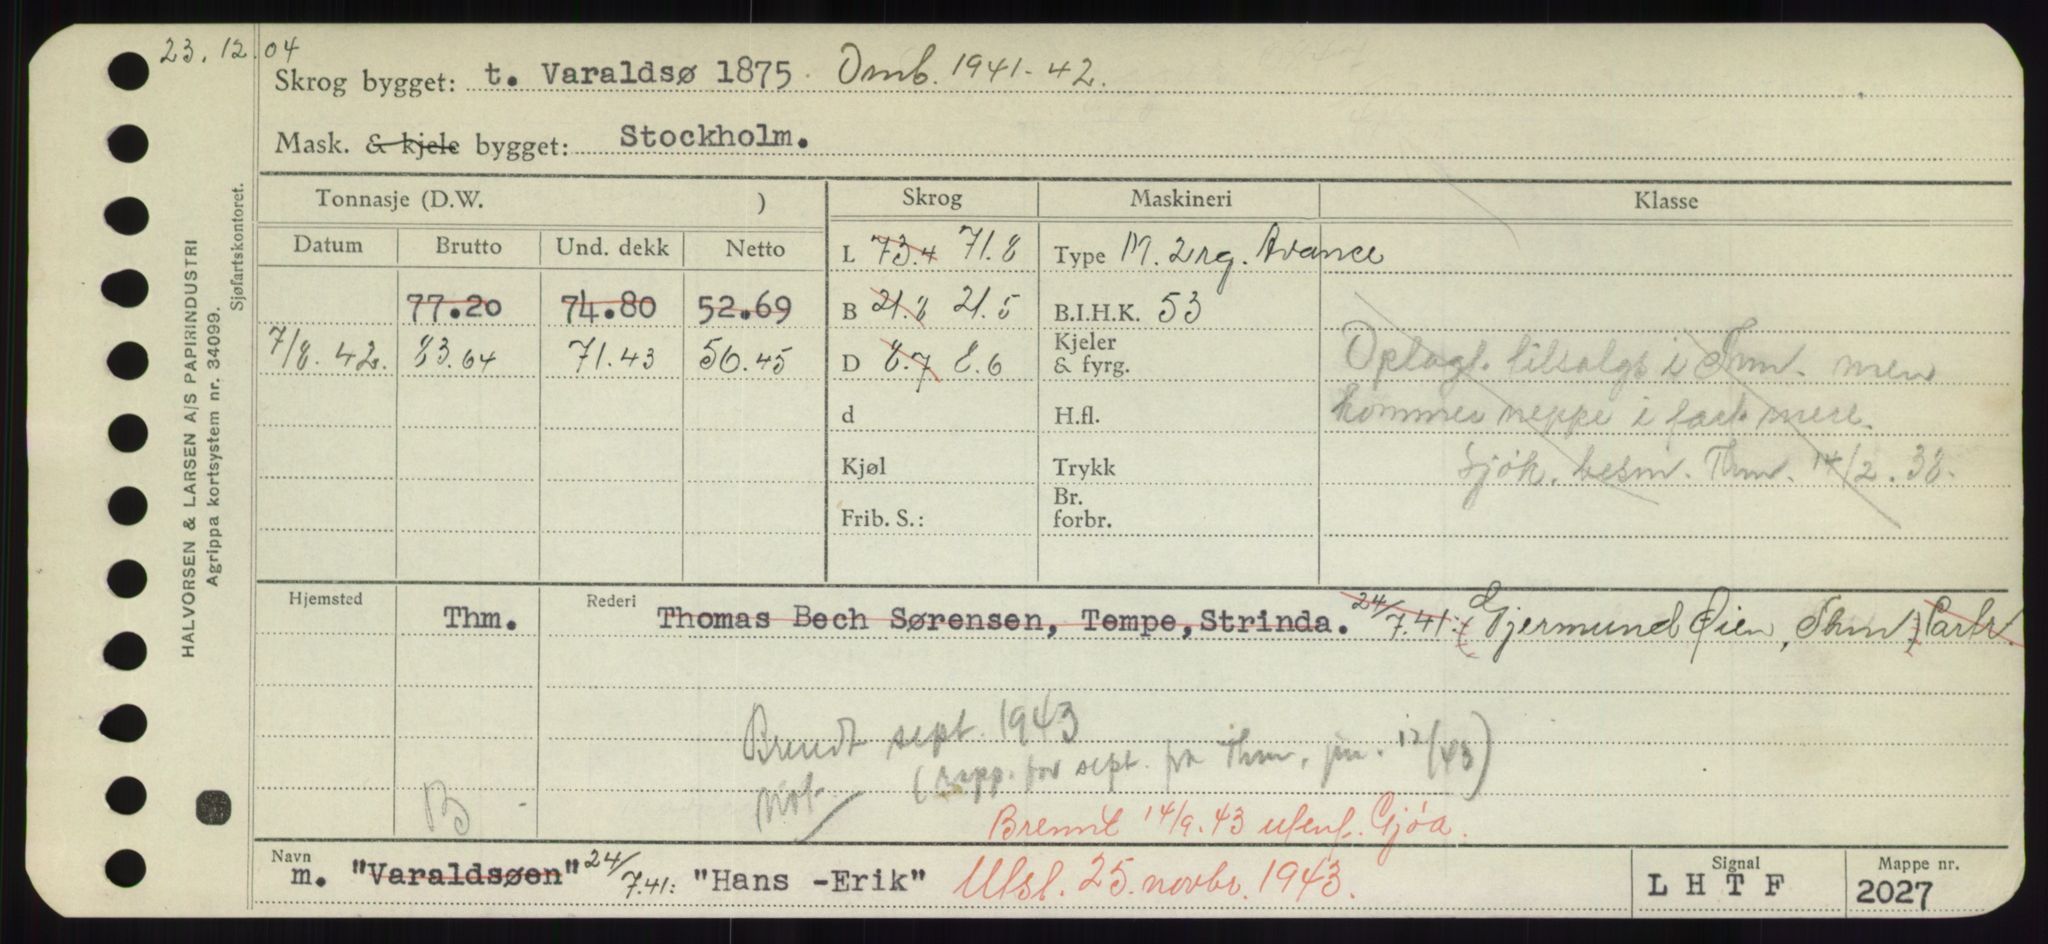 23.12.04
Skrog bygget: t. Varaldsø 1875. Omb. 1941-42.
Mask. & kjele bygget: Stockholm.
HALVORSEN & LARSEN A/S PAPIRINDUSTRI
Agrippa kortsystem nr. 34099.
Sjøfartskontoret.
Tonnasje (D.W. ) Skrog Maskineri Klasse
Datum Brutto Und. dekk Netto
L 73.4 71.8 Type M. 2rg. Avance
77.20 74.80 52.69 B 21.8 21.5 B.I.H.K. 53
7/8.42. 83.64 71.43 50.45 D 8.7 8.6 Kjeler & fyrg.
Oplagt. tilsalgs i Thm. men
d H.fl. kommer neppe i fart mere.
Kjøl Trykk Sjøk. besm. Thm. 14/2.38.
Frib. S.: Br. forbr.
Hjemsted Thm. Rederi Thomas Bech Sørensen, Tempe, Strinda. 24/7.41: (Gjermund Øien, Thm) Partr.
Brendt sept. 1943
(Rapp. for sept. fra Thm. jnr. 12/43)
Not.
B
Brennt 14/9.43 utenf. Gjøa.
Navn m. "Varaldsøen" 24/7.41: "Hans -Erik" Utsl. 25. novbr. 1943. Signal L H T F Mappe nr. 2027